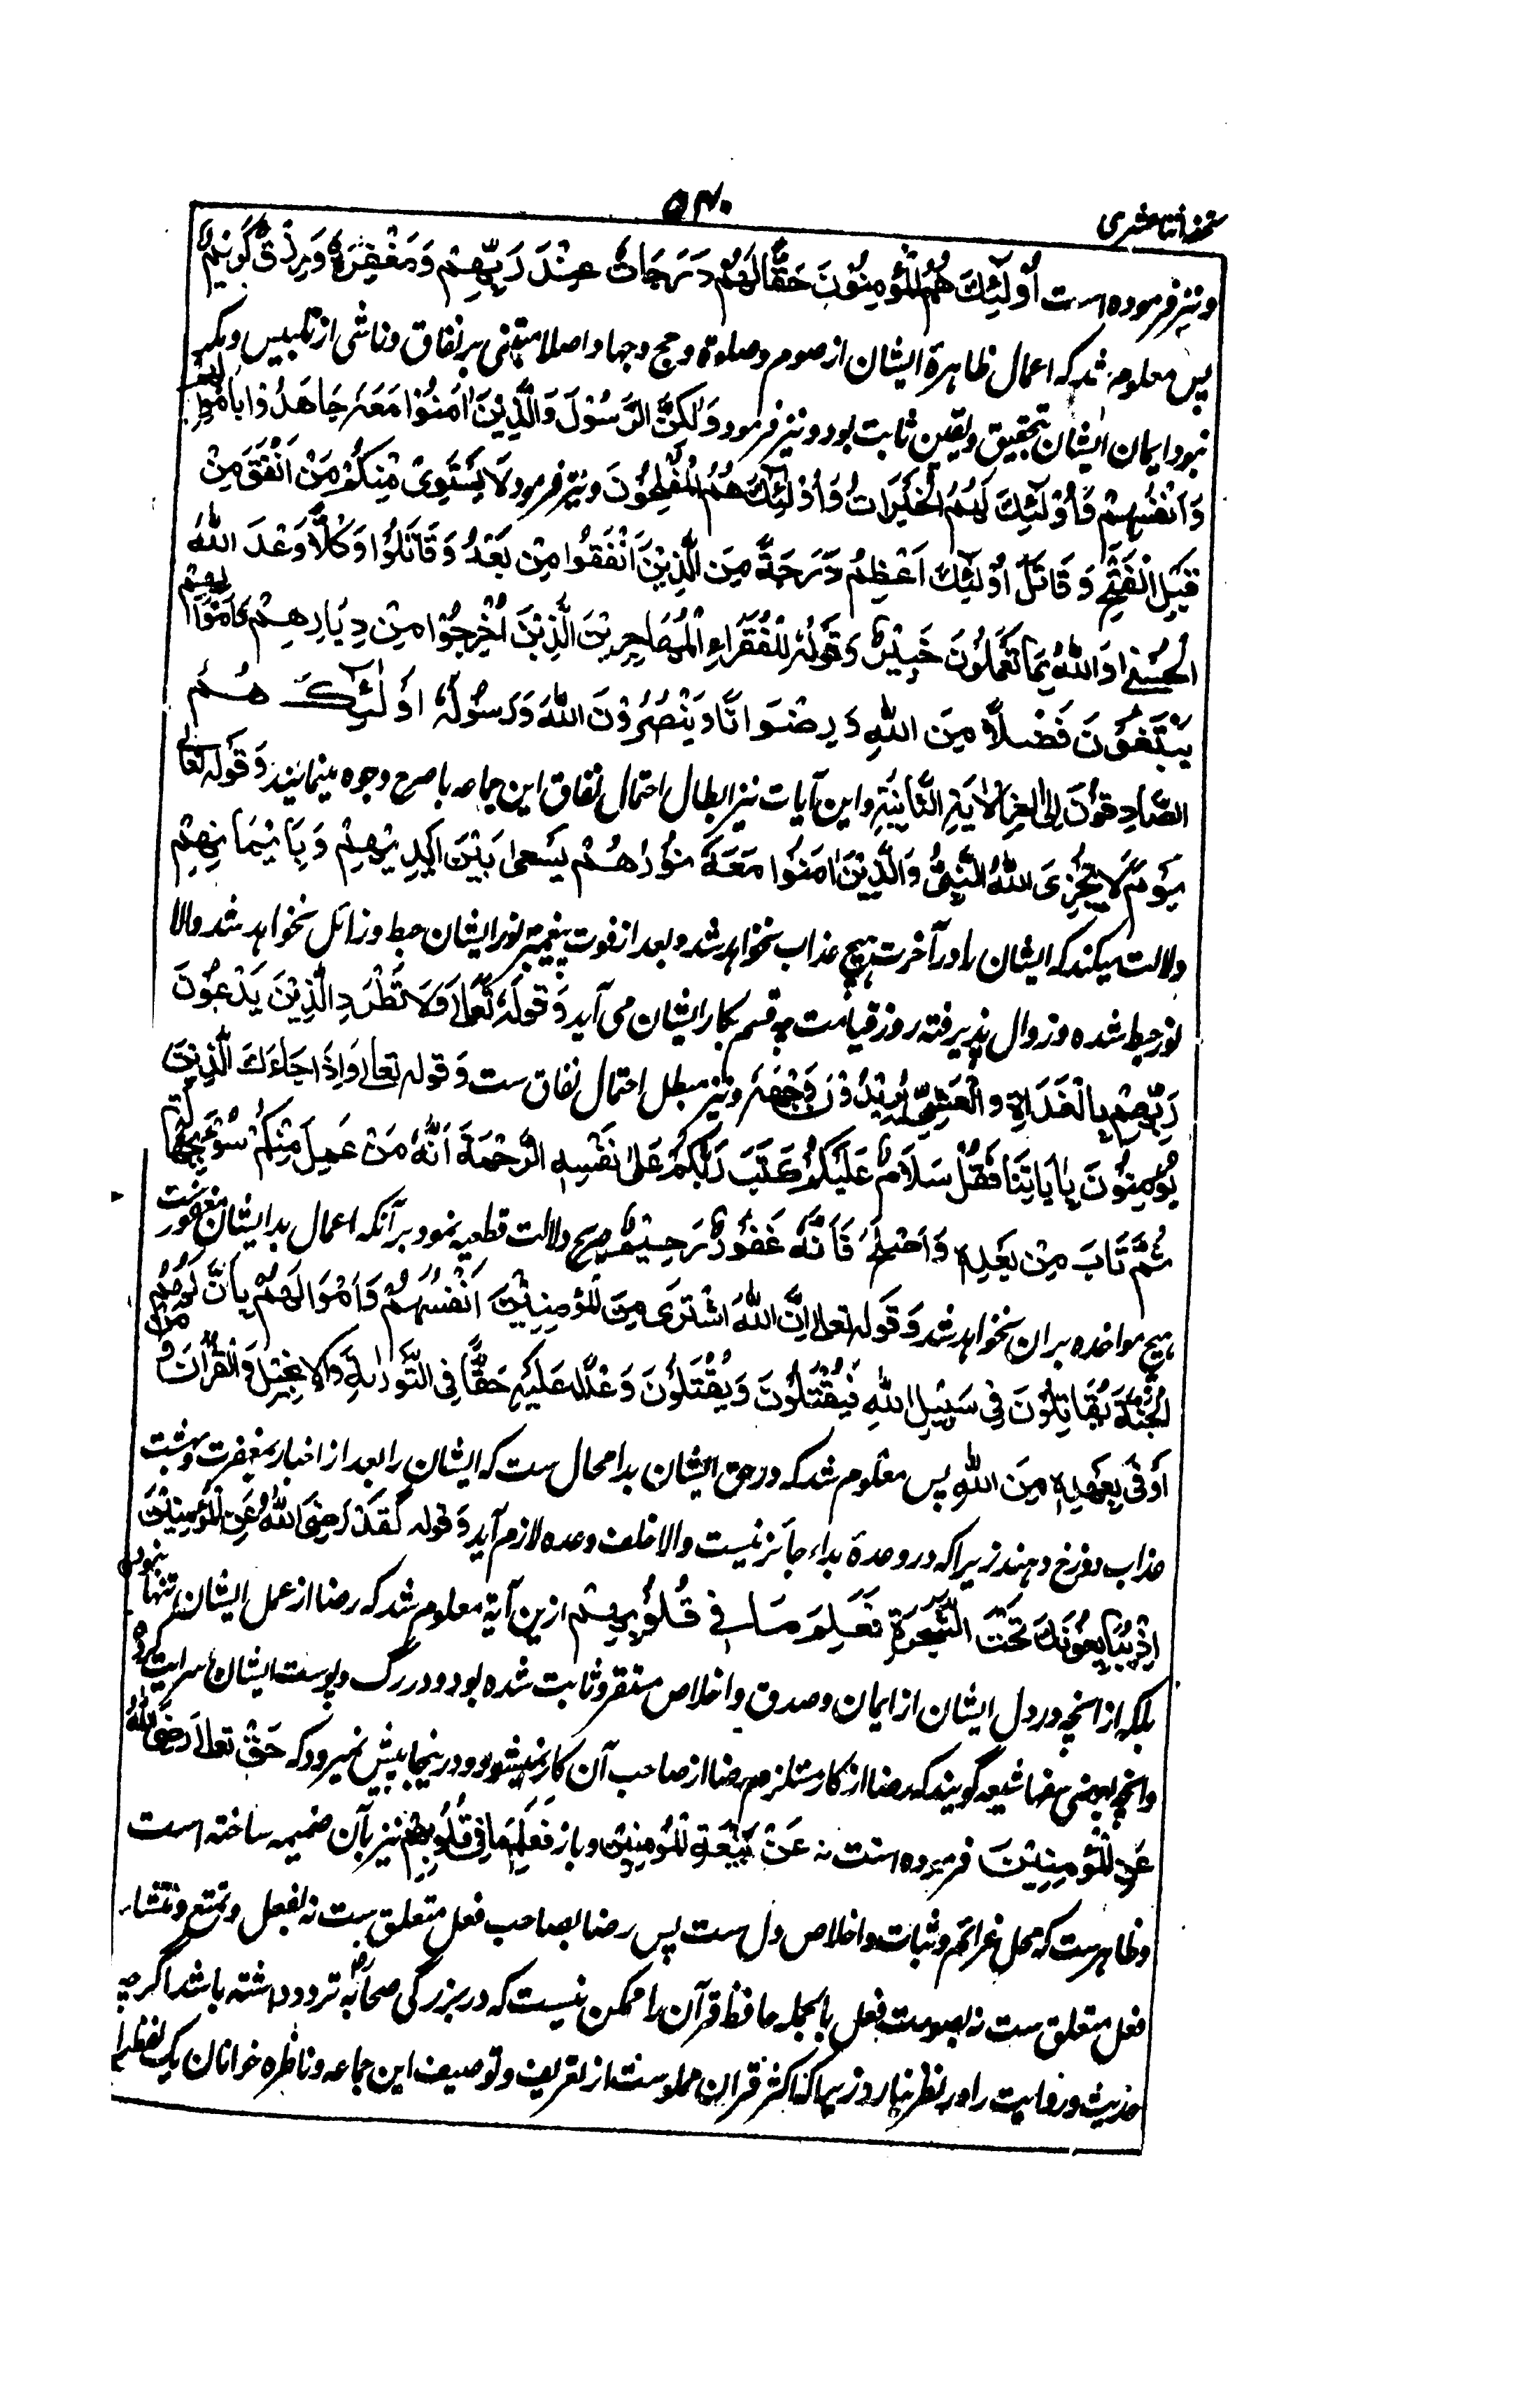 تحفه اثنا عشری
۵۴۰
ونیز فرموده است اُولٰٓئِكَ هُمُ الْمُؤْمِنُوْنَ حَقًّا لَهُمْ دَرَجَاتٌ عِنْدَ رَبِّهِمْ وَمَغْفِرَةٌ وَرِزْقٌ كَرِيْمٌ
پس معلوم شد که اعمال ظاهرهٔ ایشان از صوم وصلوة وحج وجهاد اصلا مبتنی بر نفاق وناشی از تلبیس ومکر
نبود ایمان ایشان بتحقیق ویقین ثابت بود ونیز فرمود وَلٰكِنَّ الرَّسُوْلَ وَالَّذِيْنَ اٰمَنُوْا مَعَهٗ جَاهَدُوْا بِاَمْوَالِهِمْ
وَاَنْفُسِهِمْ فَاُوْلٰٓئِكَ لَهُمُ الْخَيْرَاتُ وَاُوْلٰٓئِكَ هُمُ الْمُفْلِحُوْنَ ونیز فرمود لَا يَسْتَوِىْ مِنْكُمْ مَنْ اَنْفَقَ مِنْ
قَبْلِ الْفَتْحِ وَقَاتَلَ اُوْلٰٓئِكَ اَعْظَمُ دَرَجَةً مِنَ الَّذِيْنَ اَنْفَقُوا مِنْ بَعْدُ وَقَاتَلُوْا وَكُلًّا وَعَدَ اللّٰهُ
الْحُسْنٰى وَاللّٰهُ بِمَا تَعْمَلُوْنَ خَبِيْرٌ وَقَوْلُهٗ لِلْفُقَرَاءِ الْمُهَاجِرِيْنَ الَّذِيْنَ اُخْرِجُوْا مِنْ دِيَارِهِمْ وَاَمْوَالِهِمْ
يَبْتَغُوْنَ فَضْلًا مِنَ اللّٰهِ وَرِضْوَانًا وَيَنْصُرُوْنَ اللّٰهَ وَرَسُوْلَهٗ اُولٰٓئِكَ هُمُ
الصَّادِقُوْنَ اِلٰى اٰخِرِ الْاٰيَةِ الثَّانِيَةِ واین آیات نیز ابطال احتمال نفاق این جماعه باصرح وجوه مینمایند وَقَوْلُهٗ تَعَالٰى
يَوْمَ لَا يُخْزِى اللّٰهُ النَّبِىَّ وَالَّذِيْنَ اٰمَنُوْا مَعَهٗ نُوْرُهُمْ يَسْعٰى بَيْنَ اَيْدِيْهِمْ وَبِاَيْمَانِهِمْ
دلالت میکند که ایشان را در آخرت هیچ عذاب نخواهد شد وبعد از فوت پیغمبر نور ایشان حبط وزائل نخواهد شد والا
نور حبط شده وزوال پذیرفته روز قیامت چه قسم بکار ایشان می آید وَقَوْلُهٗ تَعَالٰى وَلَا تَطْرُدِ الَّذِيْنَ يَدْعُوْنَ
رَبَّهُمْ بِالْغَدَاةِ وَالْعَشِىِّ يُرِيْدُوْنَ وَجْهَهٗ ونیز مبطل احتمال نفاق ست وَقوله تعالى وَاِذَا جَاءَكَ الَّذِيْنَ
يُؤْمِنُوْنَ بِاٰيَاتِنَا فَقُلْ سَلَامٌ عَلَيْكُمْ كَتَبَ رَبُّكُمْ عَلٰى نَفْسِهِ الرَّحْمَةَ اَنَّهٗ مَنْ عَمِلَ مِنْكُمْ سُوْءً بِجَهَالَةٍ
ثُمَّ تَابَ مِنْ بَعْدِهٖ وَاَصْلَحَ فَاَنَّهٗ غَفُوْرٌ رَحِيْمٌ صریح دلالت قطعیه نمود بر آنکه اعمال بد ایشان مغفورست
هیچ مواخذه بران نخواهد شد وَقَوله تعالى اِنَّ اللّٰهَ اشْتَرٰى مِنَ الْمُؤْمِنِيْنَ اَنْفُسَهُمْ وَاَمْوَالَهُمْ بِاَنَّ لَهُمُ
الْجَنَّةَ يُقَاتِلُوْنَ فِىْ سَبِيْلِ اللّٰهِ فَيَقْتُلُوْنَ وَيُقْتَلُوْنَ وَعْدًا عَلَيْهِ حَقًّا فِى التَّوْرٰىةِ وَالْاِنْجِيْلِ وَالْقُرْاٰنِ وَمَنْ
اَوْفٰى بِعَهْدِهٖ مِنَ اللّٰهِ پس معلوم شد که در حق ایشان بدا محال ست که ایشان را بعد از اخبار بمغفرت وبهشت
عذاب دوزخ دهند زیرا که در وعده بداء جائز نیست والا خلف وعده لازم آید وَقوله لَقَدْ رَضِىَ اللّٰهُ عَنِ الْمُؤْمِنِيْنَ
اِذْ يُبَايِعُوْنَكَ تَحْتَ الشَّجَرَةِ فَعَلِمَ مَا فِىْ قُلُوْبِهِمْ ازین آیة معلوم شد که رضا از عمل ایشان تنها نبود
بلکه از انچه در دل ایشان از ایمان وصدق واخلاص مستقر وثابت شده بود ودر رگ وپوست ایشان سرایت کرده
وانچه بعضی سفها شیعه گویند که رضا از کار مستلزم رضا از صاحب آن کار نمیشود ودر ینجا پیش نمیرود که حق تعالی رَضِىَ اللّٰهُ
عَنِ الْمُؤْمِنِيْنَ فرموده است نه عَنْ بَيْعَةِ الْمُؤْمِنِيْنَ وباز فَعَلِمَ مَا فِىْ قُلُوْبِهِمْ نیز بآن ضمیمه ساخته است
وظاهرست که محل عزائم وثبات واخلاص دل ست پس رضا بصاحب فعل متعلق ست نه بفعل و
فعل متعلق ست نه بصورت فعل بالجمله حافظ قرآن را ممکن نیست که در بزرگی صحابه تردد داشته باشد اگرچه
حدیث وروایت را در نظر نیارد زیرا که اکثر قران مملوست از تعریف وتوصیف این جماعه وناظره خوانان یک لفظ را